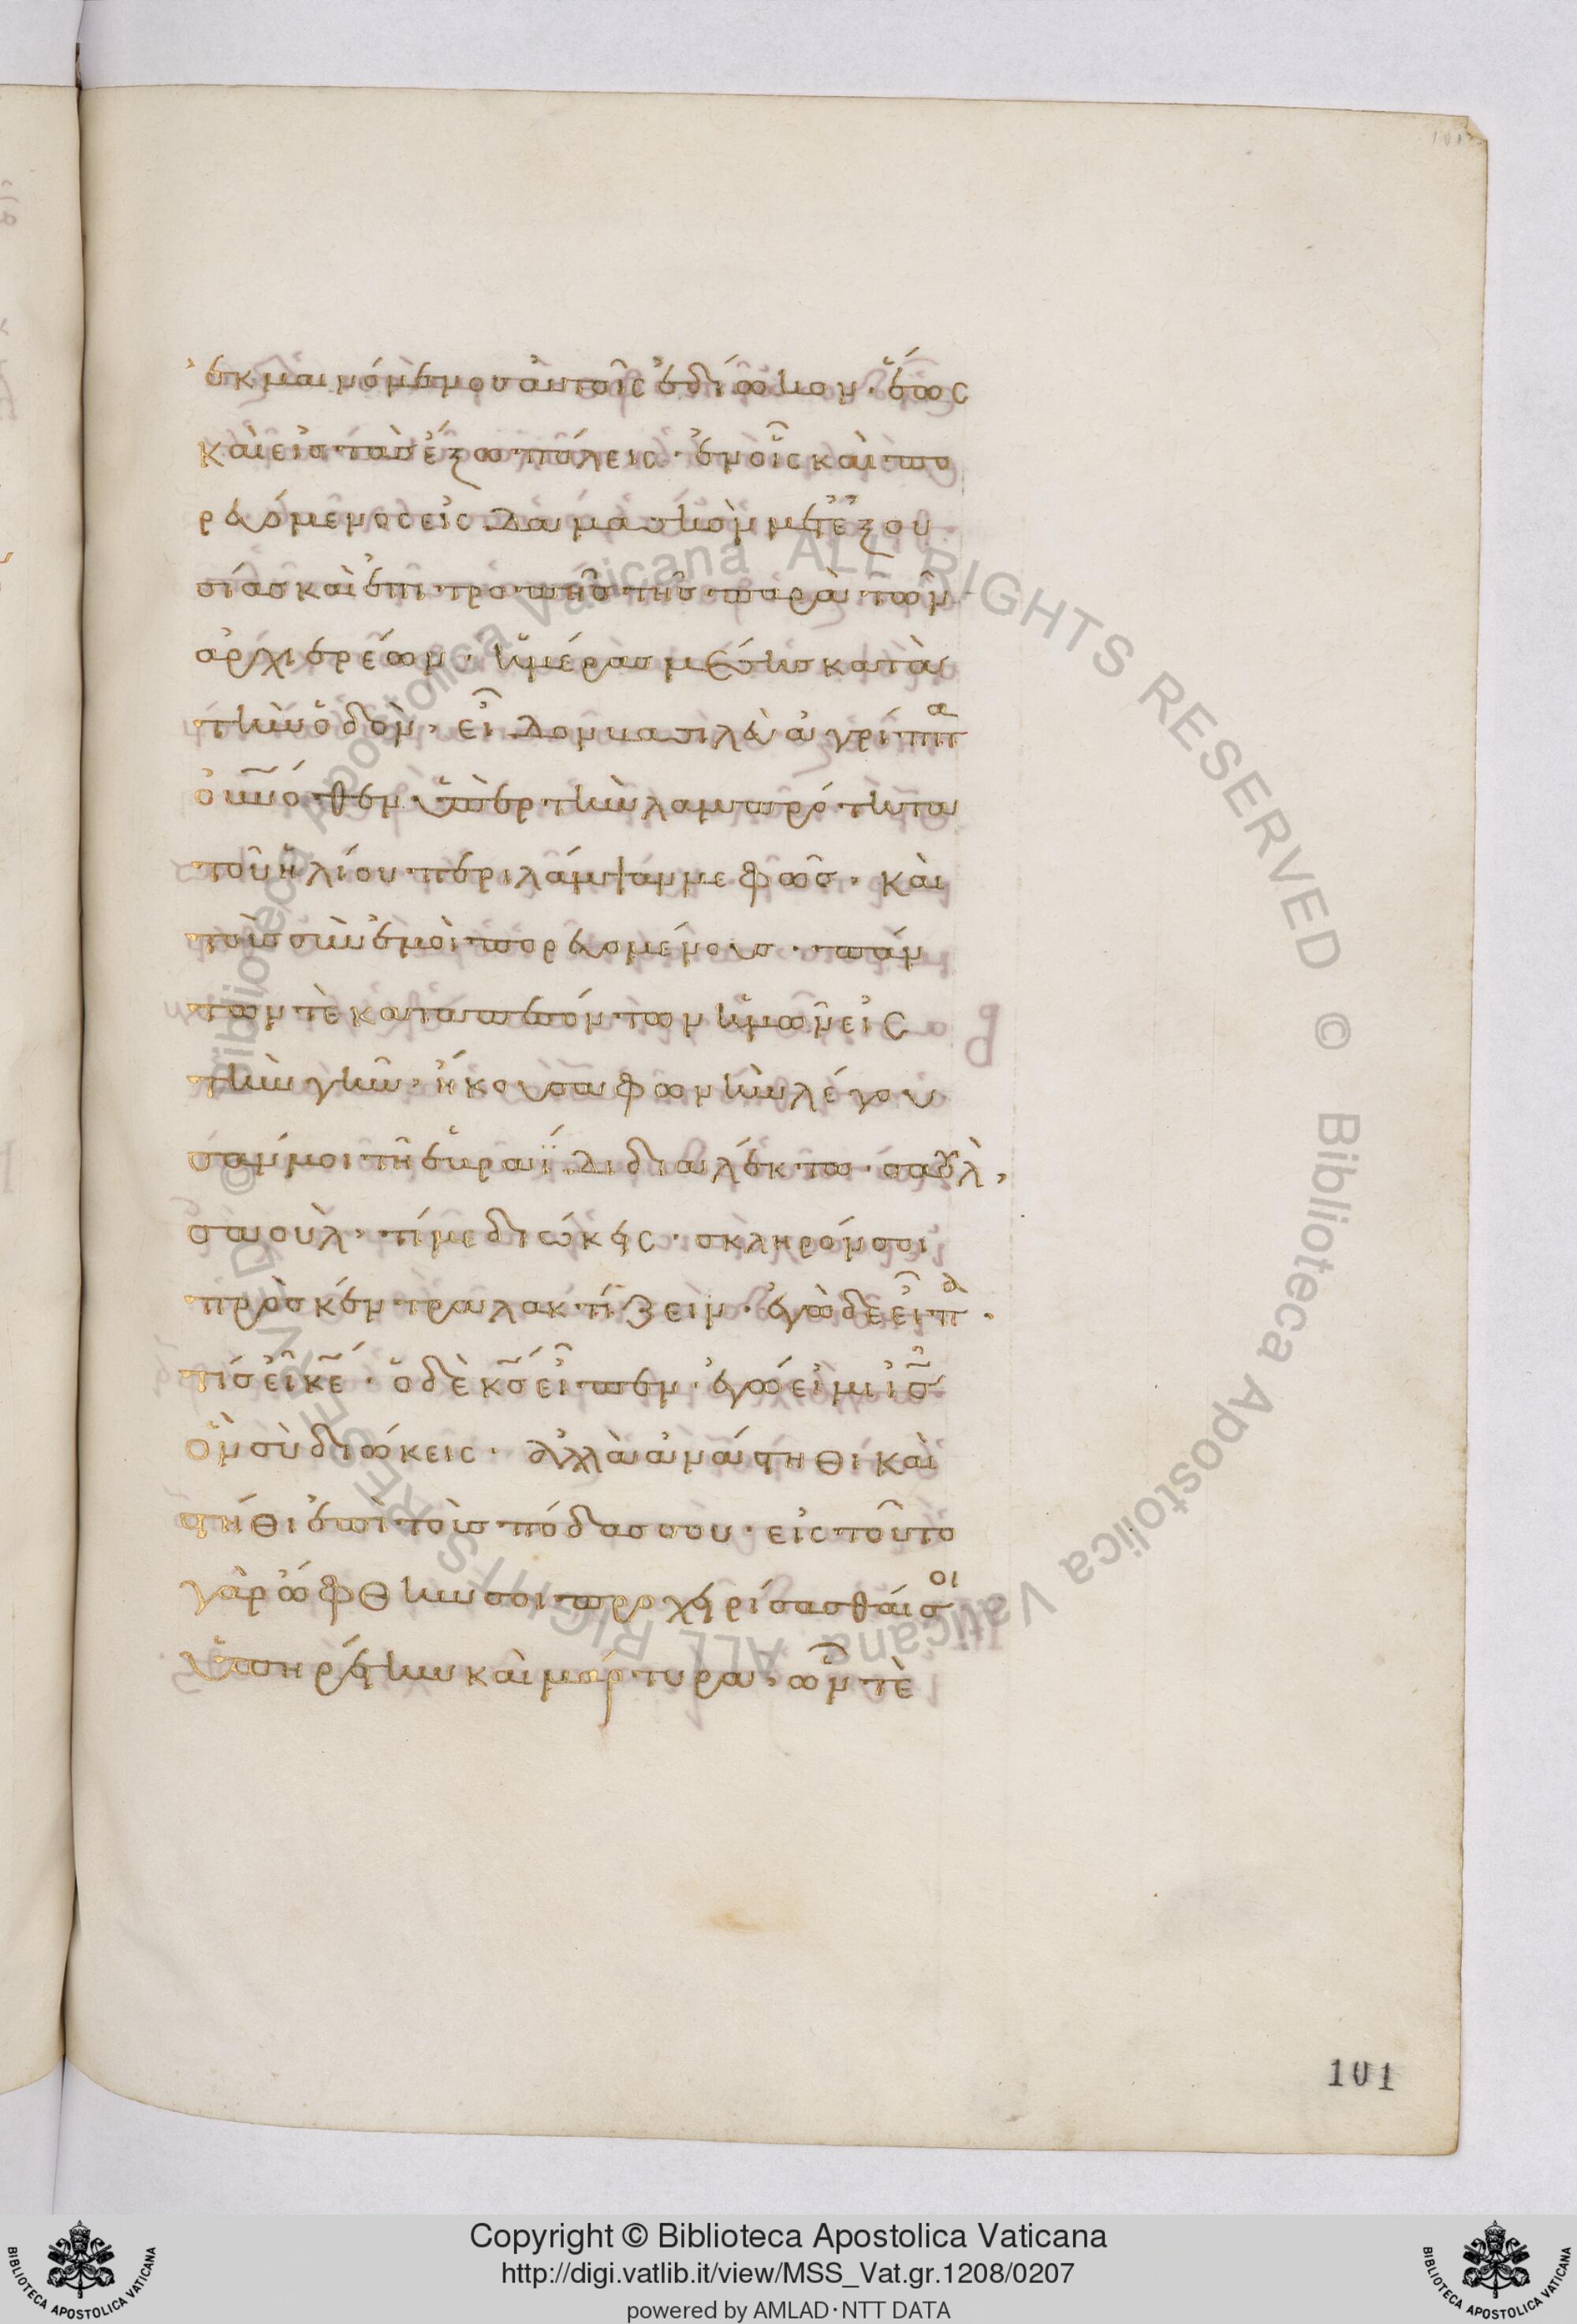 ἐκμαινόμενου αὐτοῖς ἐδίωκον· ἕως
καὶ εἰς τὰς ἔξω πόλεις· ἐν οἷς καὶ πο
ρευόμενος εἰς δαμασκὸν μετ' ἐξου
σίας καὶ ἐπιτροπῆς τῆς παρὰ τῶν
ἀρχιερέων· ἡμέρας μέσης κατὰ
τὴν ὁδὸν, εἶδον βασιλεῦ ἀγρίππα
οὐνόθεν ὑπὲρ τὴν λαμπρότητα
τοῦ ἡλίου περιλάμψαν με φῶς· καὶ
τοὺς σὺν ἐμοὶ πορευομένους· πάν
των τὲ καταπεσόντων ἡμῶν εἰς
τὴν γῆν, ἤκουσα φωνὴν λέγου
σάν μοι τῇ ἑβραΐδι διαλέκτω· σαοὺλ,
σαοὺλ, τί με διώκεις· σκληρόν σοι
πρὸς κέντρα λακτίζειν· ἐγὼ δὲ εἶπα·
τίς εἶ κε· ὁ δὲ κς εἶπεν· ἐγώ εἰμι ις
ὃν σὺ διώκεις· ἀλλὰ ἀνάστηθι καὶ
στῆθι ἐπὶ τοὺς πόδας σου· εἰς τοῦτο
γὰρ ὤφθην σοι προχειρίσασθαί σοι
ὑπηρέτην καὶ μάρτυρα, ὧν τὲ
101
Copyright © Biblioteca Apostolica Vaticana
http://digi.vatlib.it/view/MSS_Vat.gr.1208/0207
powered by AMLAD·NTT DATA
BIBLIOTECA APOSTOLICA VATICANA
BIBLIOTECA APOSTOLICA VATICANA
© Biblioteca Apostolica Vaticana ALL RIGHTS RESERVED © Biblioteca Apostolica Vaticana ALL RIGHTS RESERVED